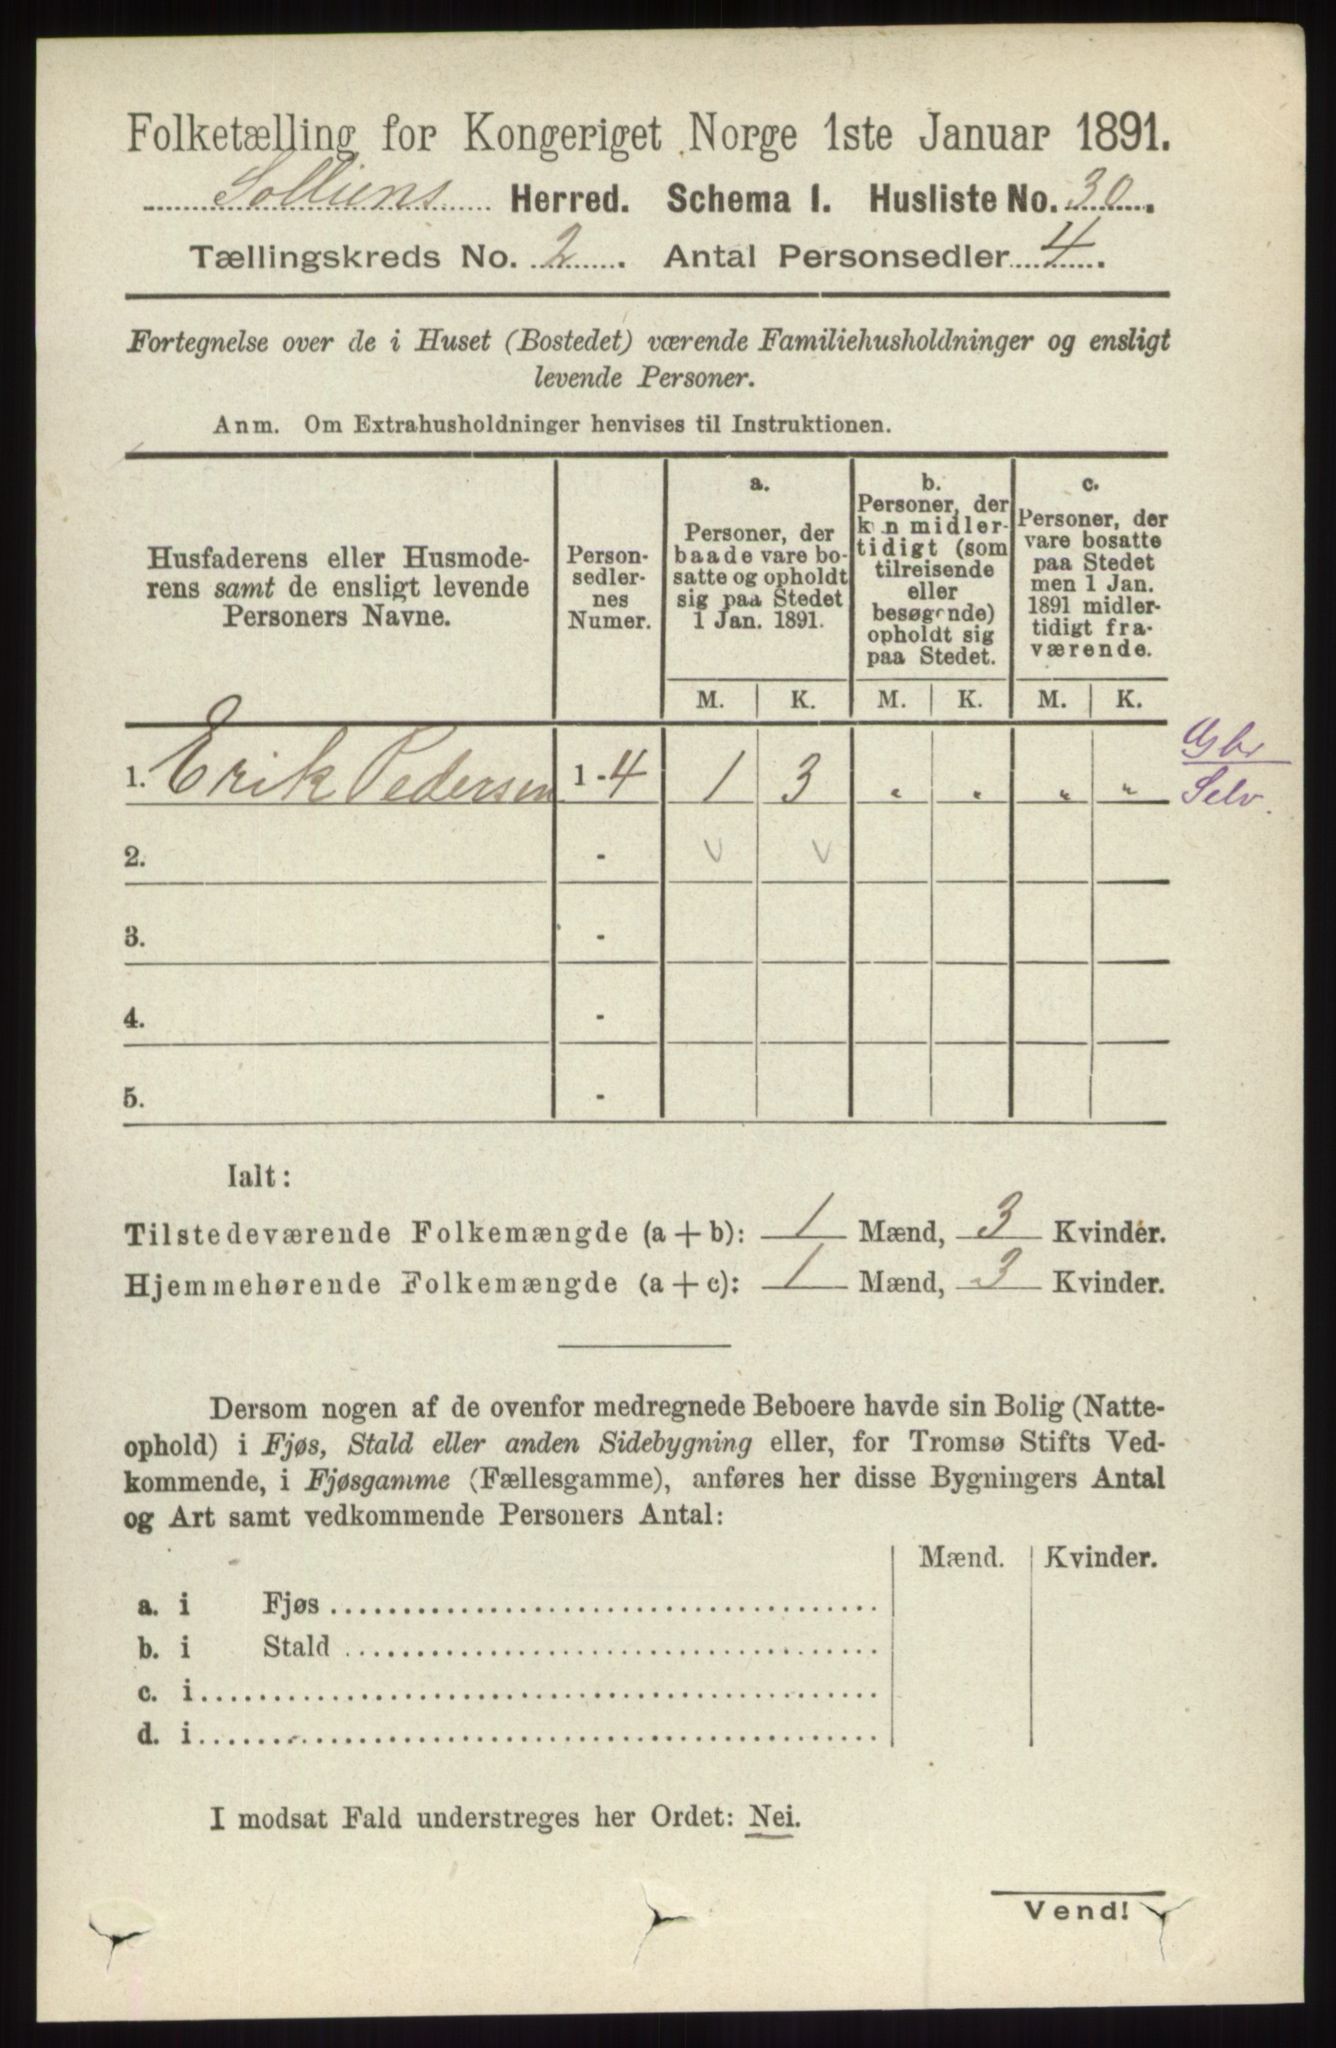 Folketælling for Kongeriget Norge 1ste Januar 1891.
Solliens Herred. Schema I. Husliste No. 30.
Tællingskreds No. 2. Antal Personsedler 4.
Fortegnelse over de i Huset (Bostedet) værende Familiehusholdninger og ensligt
levende Personer.
Anm. Om Extrahusholdninger henvises til Instruktionen.
Husfaderens eller Husmode-
rens samt de ensligt levende
Personers Navne.
Person-
sedler-
nes
Numer.
a.
Personer, der
baade vare bo-
satte og opholdt
sig paa Stedet
1 Jan. 1891.
b.
Personer, der
kun midler-
tidigt (som
tilreisende
eller
besøgende)
opholdt sig
paa Stedet.
c.
Personer, der
vare bosatte
paa Stedet
men 1 Jan.
1891 midler-
tidigt fra-
værende.
M. K. M. K. M. K.
1. Erik Pedersen 1-4 1 3 " " " "
Gbr
Selv.
2. - v v
3. -
4. -
5. -
Ialt:
Tilstedeværende Folkemængde (a + b): 1 Mænd, 3 Kvinder.
Hjemmehørende Folkemængde (a + c): 1 Mænd, 3 Kvinder.
Dersom nogen af de ovenfor medregnede Beboere havde sin Bolig (Natte-
ophold) i Fjøs, Stald eller anden Sidebygning eller, for Tromsø Stifts Ved-
kommende, i Fjøsgamme (Fællesgamme), anføres her disse Bygningers Antal
og Art samt vedkommende Personers Antal:
Mænd. Kvinder.
a. i Fjøs
b. i Stald
c. i
d. i
I modsat Fald understreges her Ordet: Nei.
Vend!